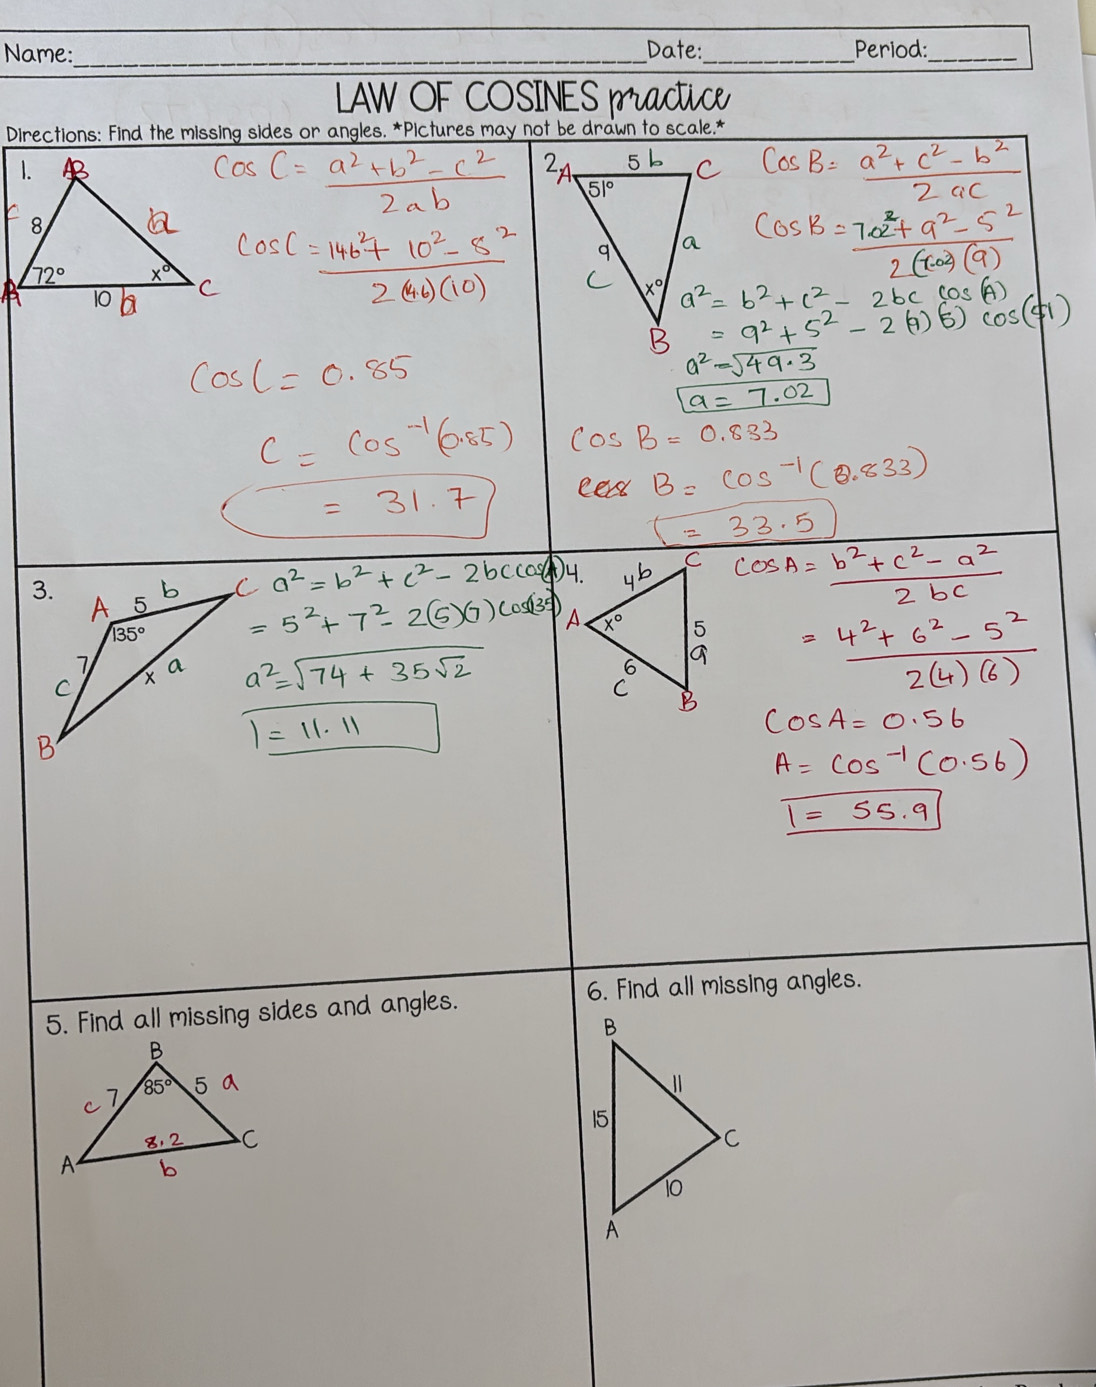 Name: Date: Period:
LAW OF COSINES practice
Directions: Find the missing sides or angles. *Pictures may not be drawn to scale.*
1.
B
c 8
a
72°
x°
A
10 b
C
Cos C = a² + b² - c² / 2ab
Cos C = 146² + 10² - 8² / 2(146)(10)
Cos C = 0.85
C = Cos⁻¹(0.85)
= 31.7
2.
A
5 b
C
51°
9
c
a
x°
B
Cos B = a² + c² - b² / 2ac
Cos B = 7.02² + 9² - 5² / 2(7.02)(9)
a² = b² + c² - 2bc cos(A)
= 9² + 5² - 2(9)(5) cos(51)
a² = √49.3
a = 7.02
Cos B = 0.833
B = Cos⁻¹(0.833)
= 33.5
3.
A
5 b
C
135°
7
c
x a
B
a² = b² + c² - 2bc cos(A)
= 5² + 7² - 2(5)(7) cos(135)
a² = √74 + 35√2
= 11.11
4.
4 b
C
A
x°
5
a
6
c
B
Cos A = b² + c² - a² / 2bc
= 4² + 6² - 5² / 2(4)(6)
Cos A = 0.56
A = Cos⁻¹(0.56)
= 55.9
5. Find all missing sides and angles.
B
c 7
85°
5 a
8.2
A
b
C
6. Find all missing angles.
B
11
15
C
10
A